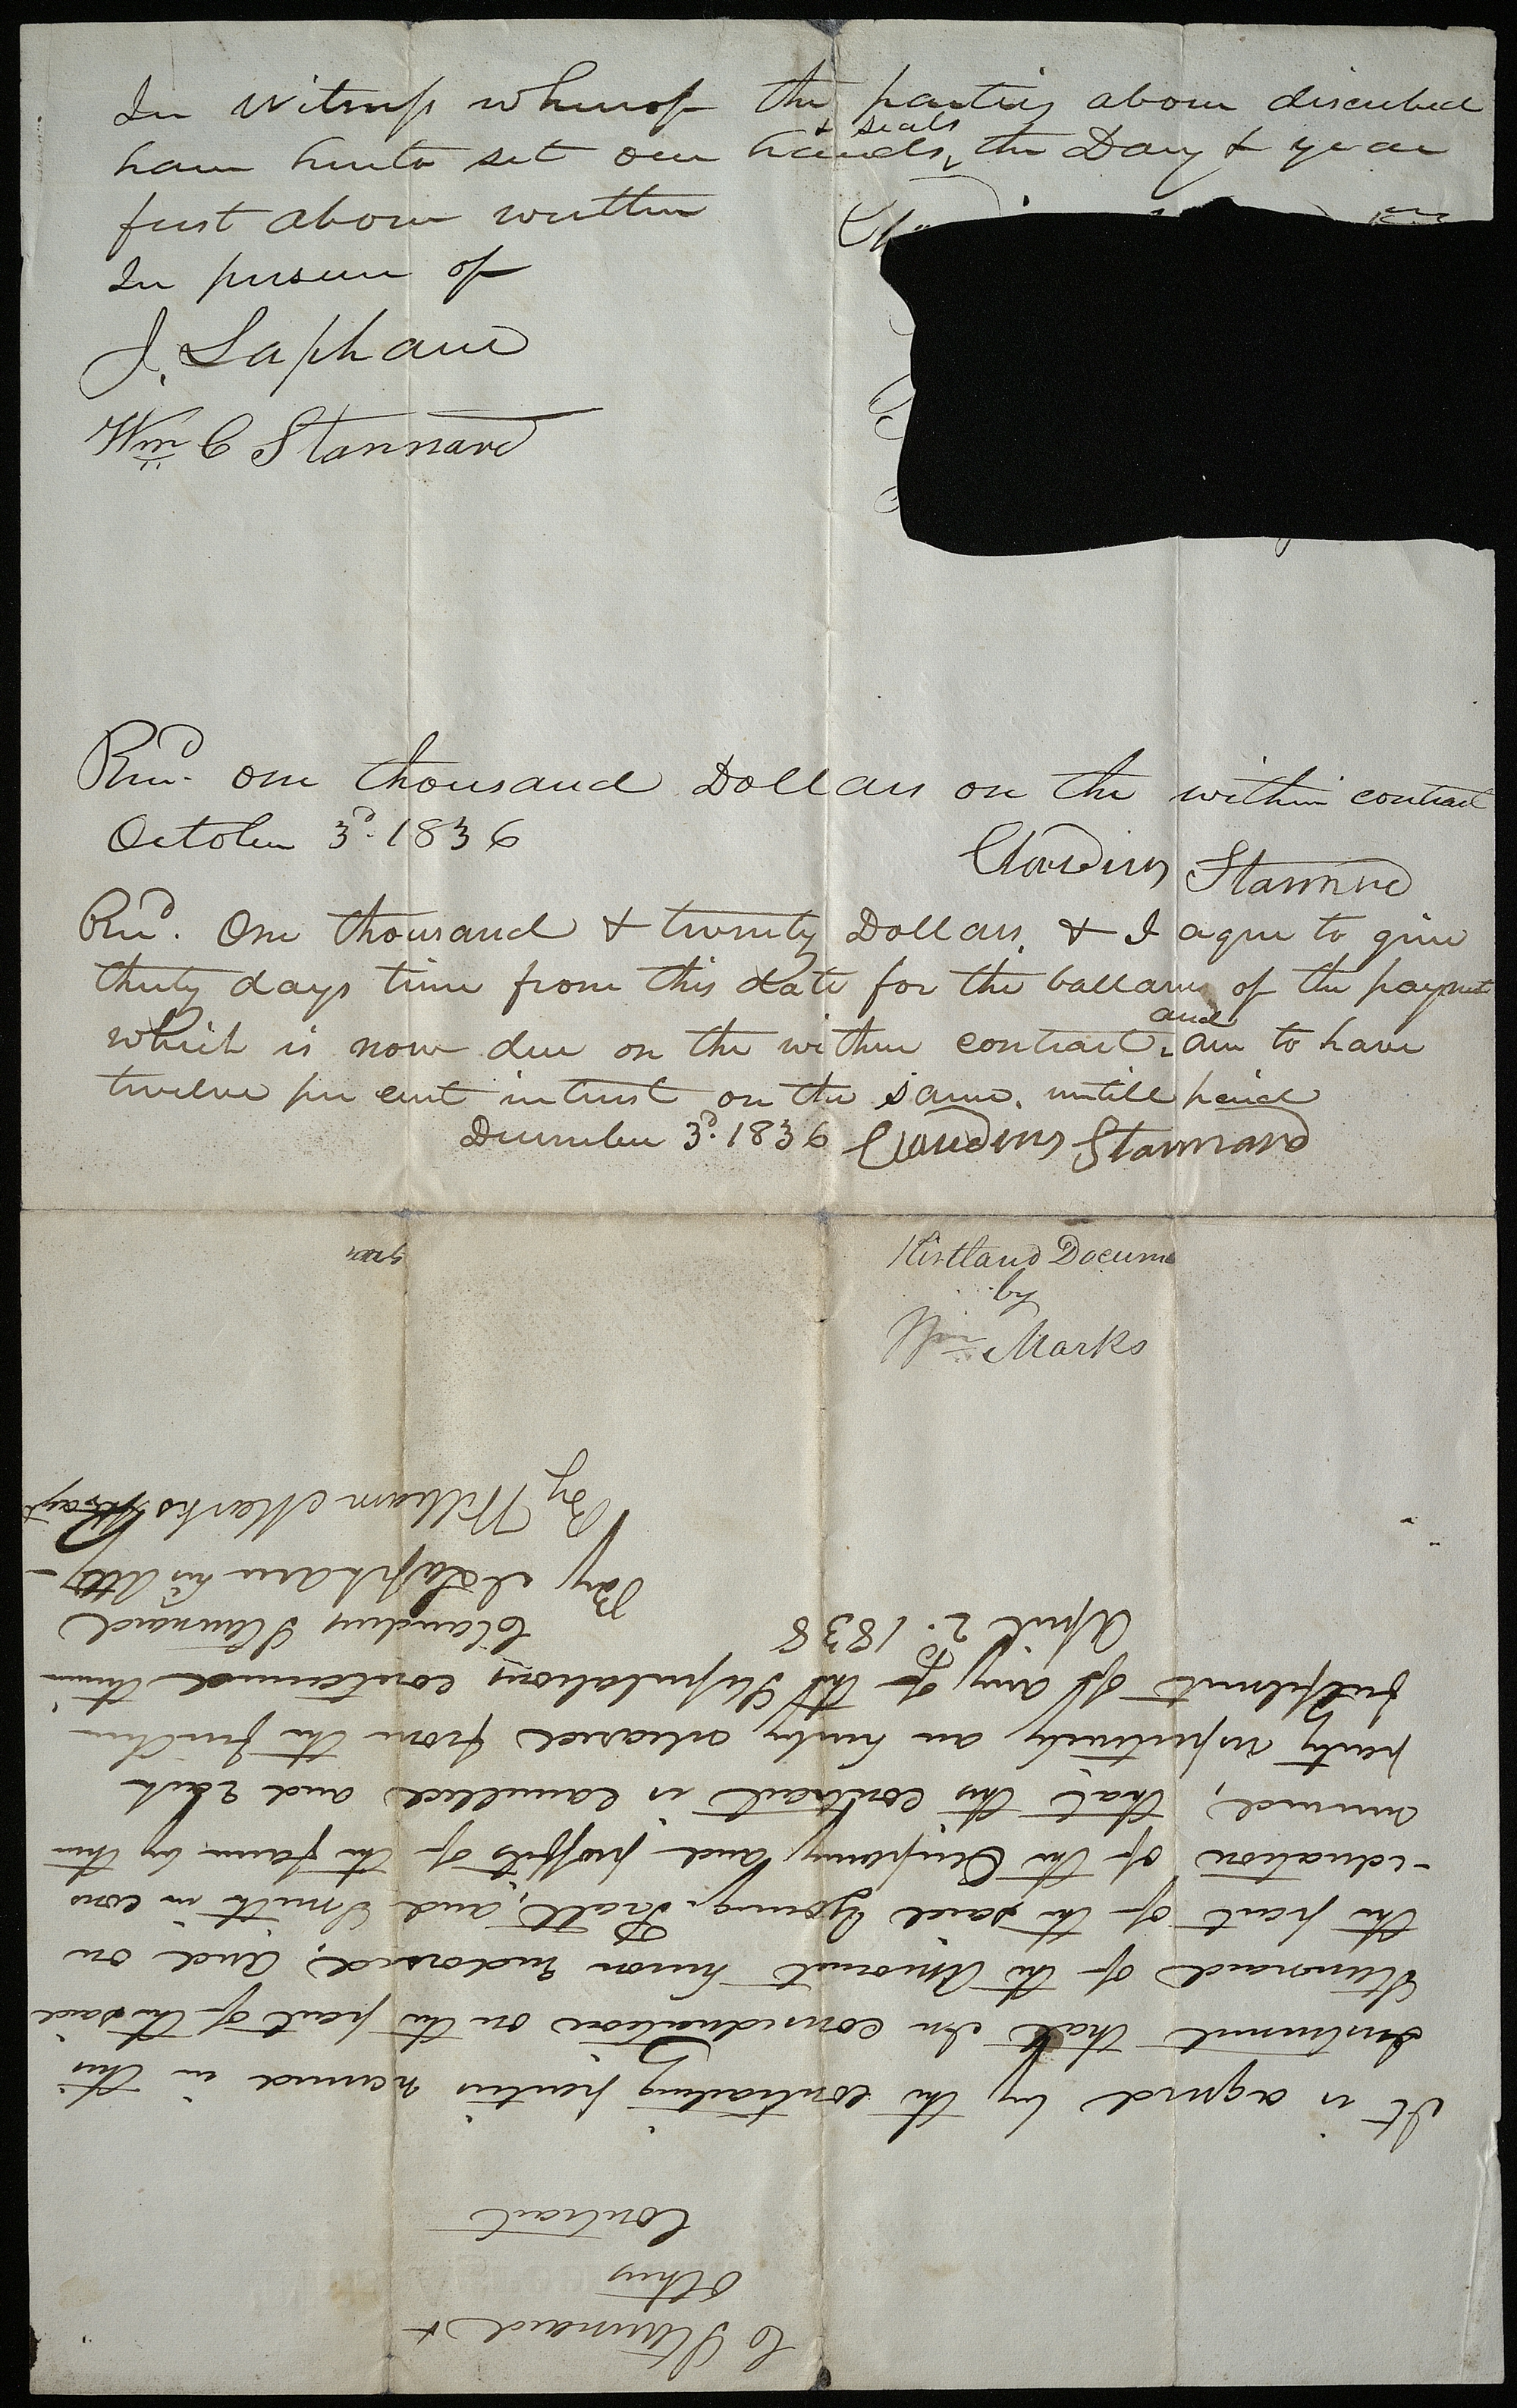 In Witness whereof the parties above discribed
have hereto set our hands & seals the Day & year
first above written
In presence of
J. Lapham
Wm C Stannard
Recd. one thousand Dollars on the within contract
October 3d. 1836
Claudius Stannard
Recd. One thousand & twenty Dollars, & I agree to give
thirty days time from this date for the ballance of the payment
which is now due on the within contract, and am to have
twelve per cent intrest on the same, untill paid
December 3d. 1836 Claudius Stannard
Kirtland Docume
by
Wm Marks
C Stannard &
others
Contract
It is agreed by the contracting parties named in this
Instrument that In consideration on the part of the said
Stannard of the Amount hereon Endorsed, And on
the part of the said Young, Pratt, and, Smith in cons
-ideration of the Ocupancy and proffits of the farm by them
annual, that this contract is cancelled and each
party respectively are hereby released from the further
fulfilment of any of the Stipulations contained therein
April 2d. 1838
Claudius Stannard
By J Lapham his Atty
By William Marks Agt